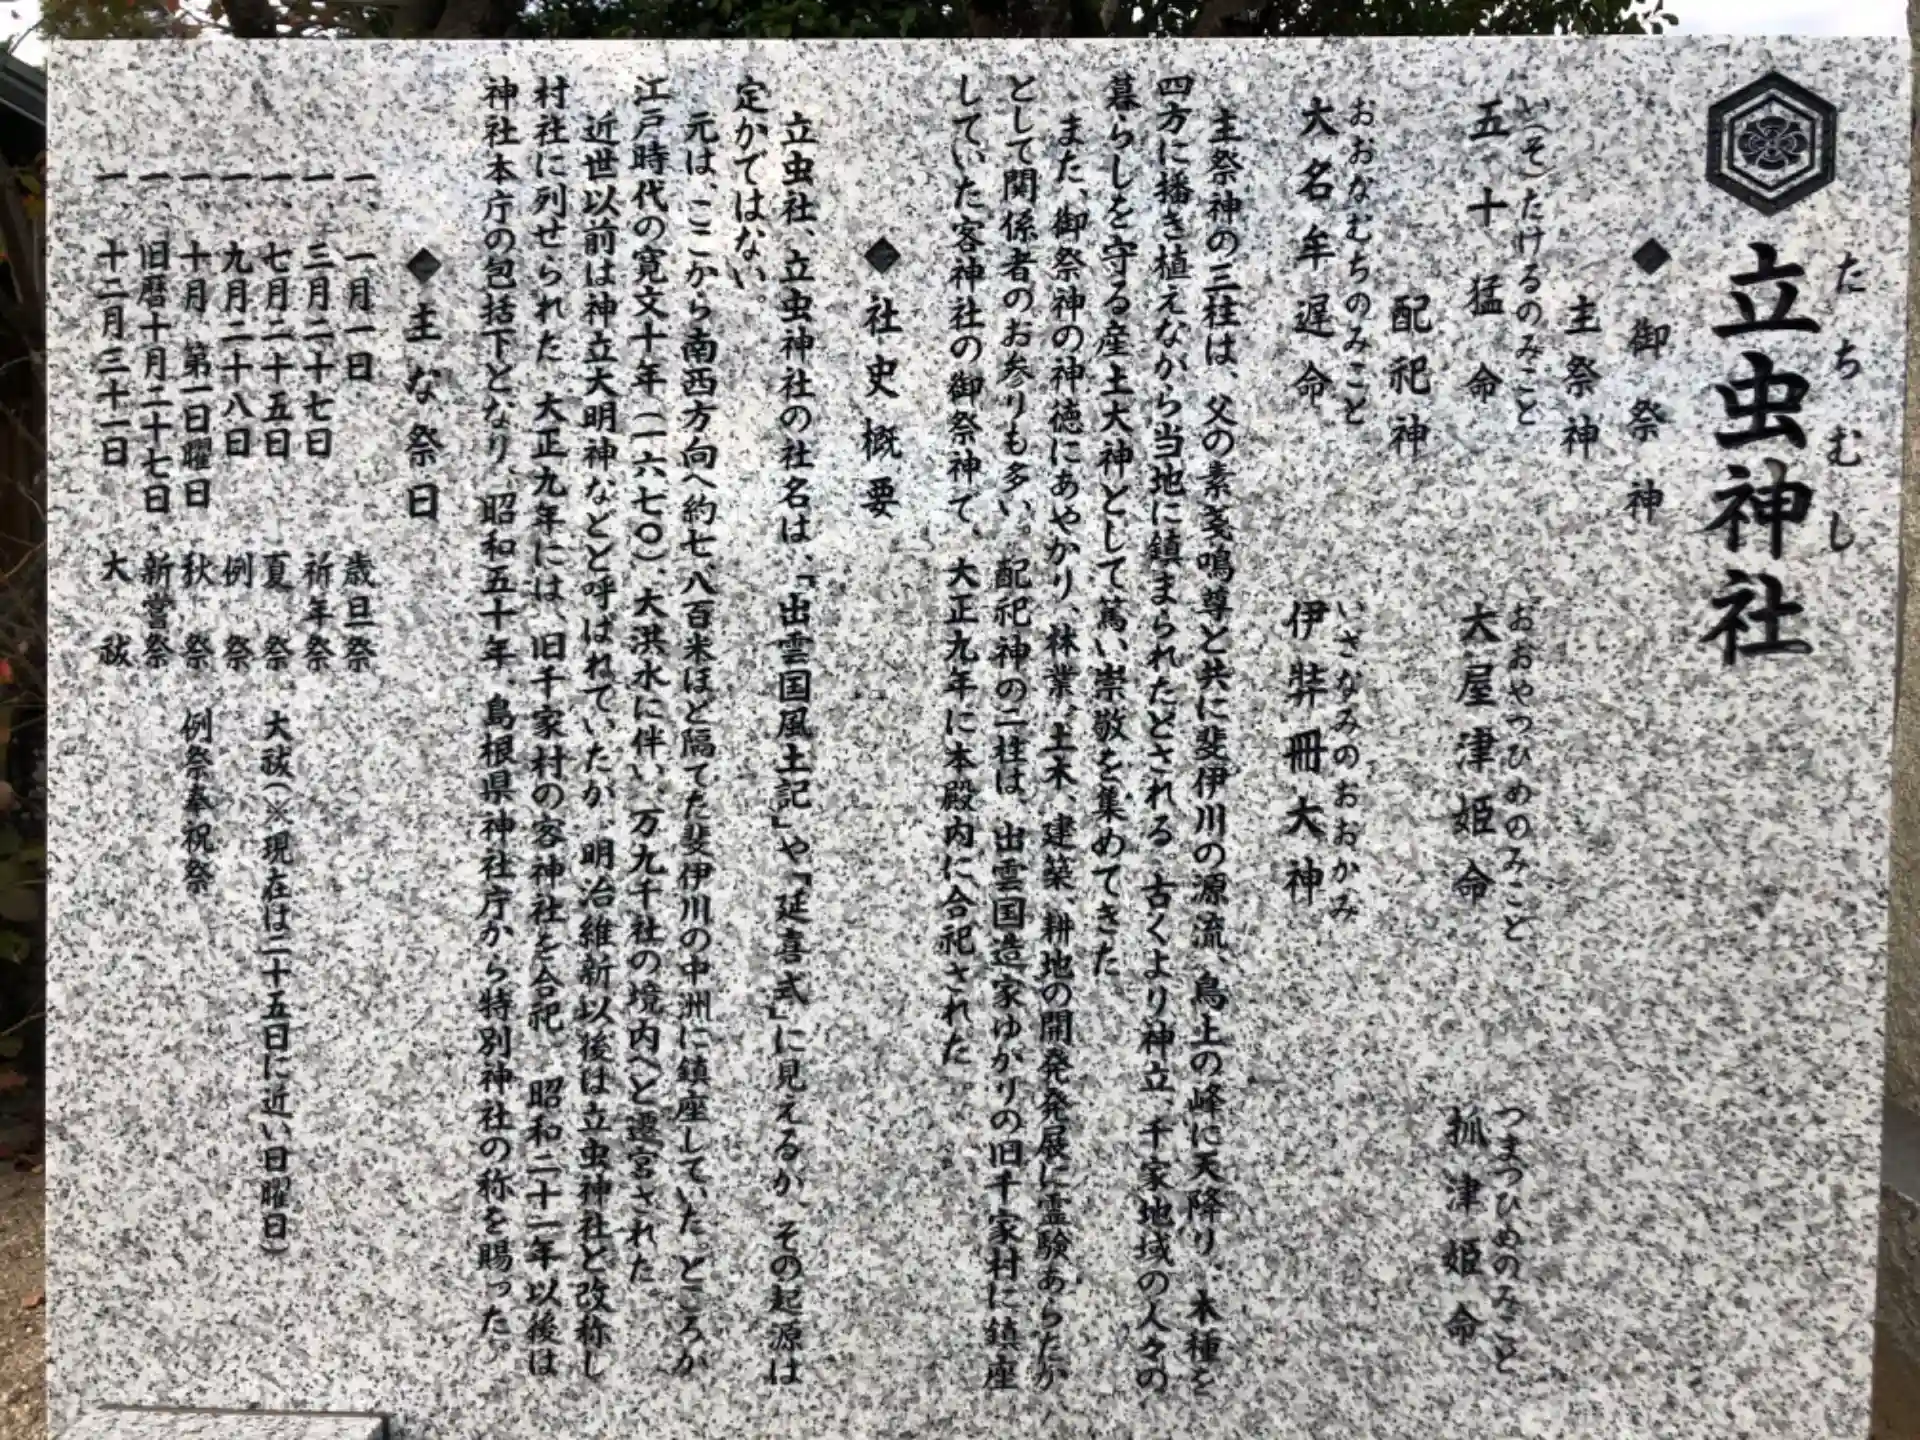 たちむし
立虫神社
◆御祭神
主祭神
い(そ)たけるのみこと おおやつひめのみこと つまつひめのみこと
五十猛命 大屋津姫命 抓津姫命
配祀神
おおなむちのみこと いざなみのおおかみ
大名牟遅命 伊弉冊大神
主祭神の三柱は、父の素戔嗚尊と共に斐伊川の源流、鳥上の峰に天降り、木種を
四方に播き植えながら当地に鎮まられたとされる。古くより神立、千家地域の人々の
暮らしを守る産土大神として篤い崇敬を集めてきた。
また、御祭神の神徳にあやかり、林業、土木、建築、耕地の開発発展に霊験あらたか
として関係者のお参りも多い。配祀神の二柱は、出雲国造家ゆかりの旧千家村に鎮座
していた客神社の御祭神で、大正九年に本殿内に合祀された。
◆社史概要
立虫社、立虫神社の社名は、「出雲国風土記」や「延喜式」に見えるが、その起源は
定かではない。
元は、ここから南西方向へ約七、八百米ほど隔てた斐伊川の中州に鎮座していた。ところが
江戸時代の寛文十年(一六七〇)、大洪水に伴い、万九千社の境内へと遷宮された。
近世以前は神立大明神などと呼ばれていたが、明治維新以後は立虫神社と改称し
村社に列せられた。大正九年には、旧千家村の客神社を合祀、昭和二十一年以後は
神社本庁の包括下となり、昭和五十年、島根県神社庁から特別神社の称を賜った。
◆主な祭日
一 一月一日 歳旦祭
一 三月二十七日 祈年祭
一 七月二十五日 夏祭 大祓(※現在は二十五日に近い日曜日)
一 九月二十八日 例祭
一 十月 第一日曜日 秋祭 例祭奉祝祭
一 旧暦十月二十七日 新嘗祭
一 十二月三十一日 大祓